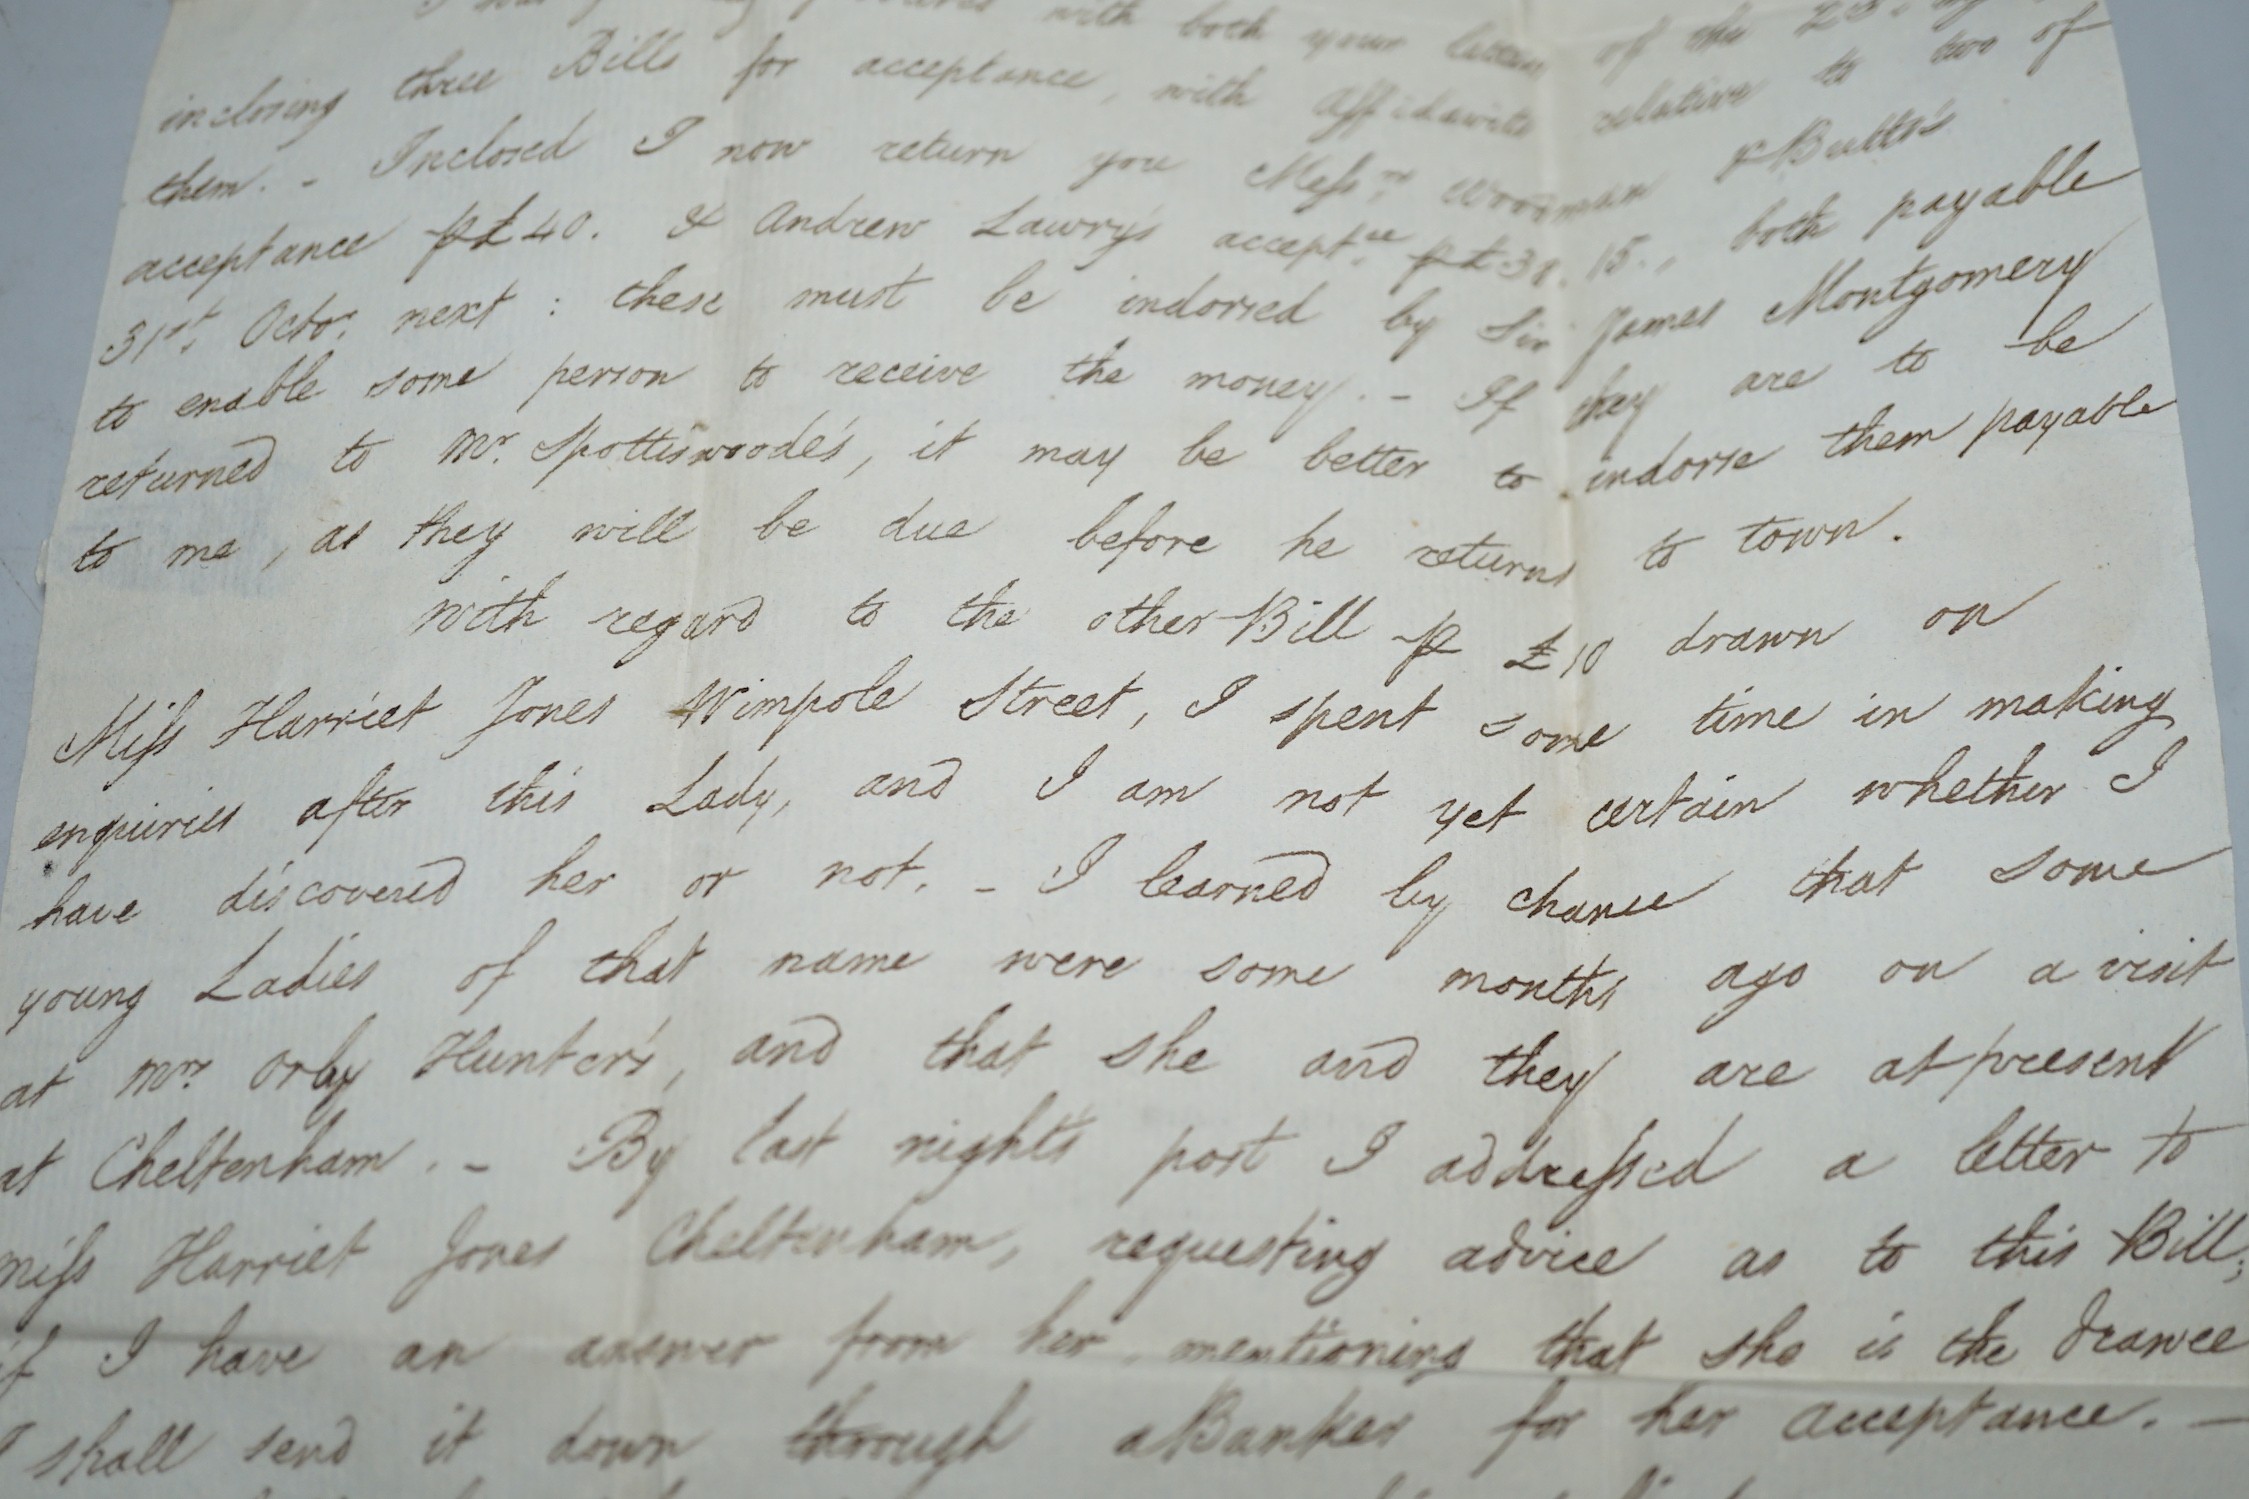 with both your letters of the
inclosing three Bills for acceptance, with Affidavits relative to two of
them. - Inclosed I now return you Messrs. Woodman & Butts's
acceptance pr £40. & Andrew Lawry's acceptce. pr £31.15., both payable
31st. Octor. next : these must be indorsed by Sir James Montgomery
to enable some person to receive the money. - If they are to be
returned to Mr. Spottiswoode's, it may be better to indorse them payable
to me, as they will be due before he returns to town.
With regard to the other Bill pr £10 drawn on
Miss Harriet Jones Wimpole Street, I spent some time in making
enquiries after this Lady, and I am not yet certain whether I
have discovered her or not. - I learned by chance that some
young Ladies of that name were some months ago on a visit
at Mrs. Orby Hunter's, and that she and they are at present
at Cheltenham. - By last night's post I addressed a letter to
Miss Harriet Jones Cheltenham, requesting advice as to this Bill;
if I have an answer from her mentioning that she is the Drawee
I shall send it down through a Banker for her acceptance. -